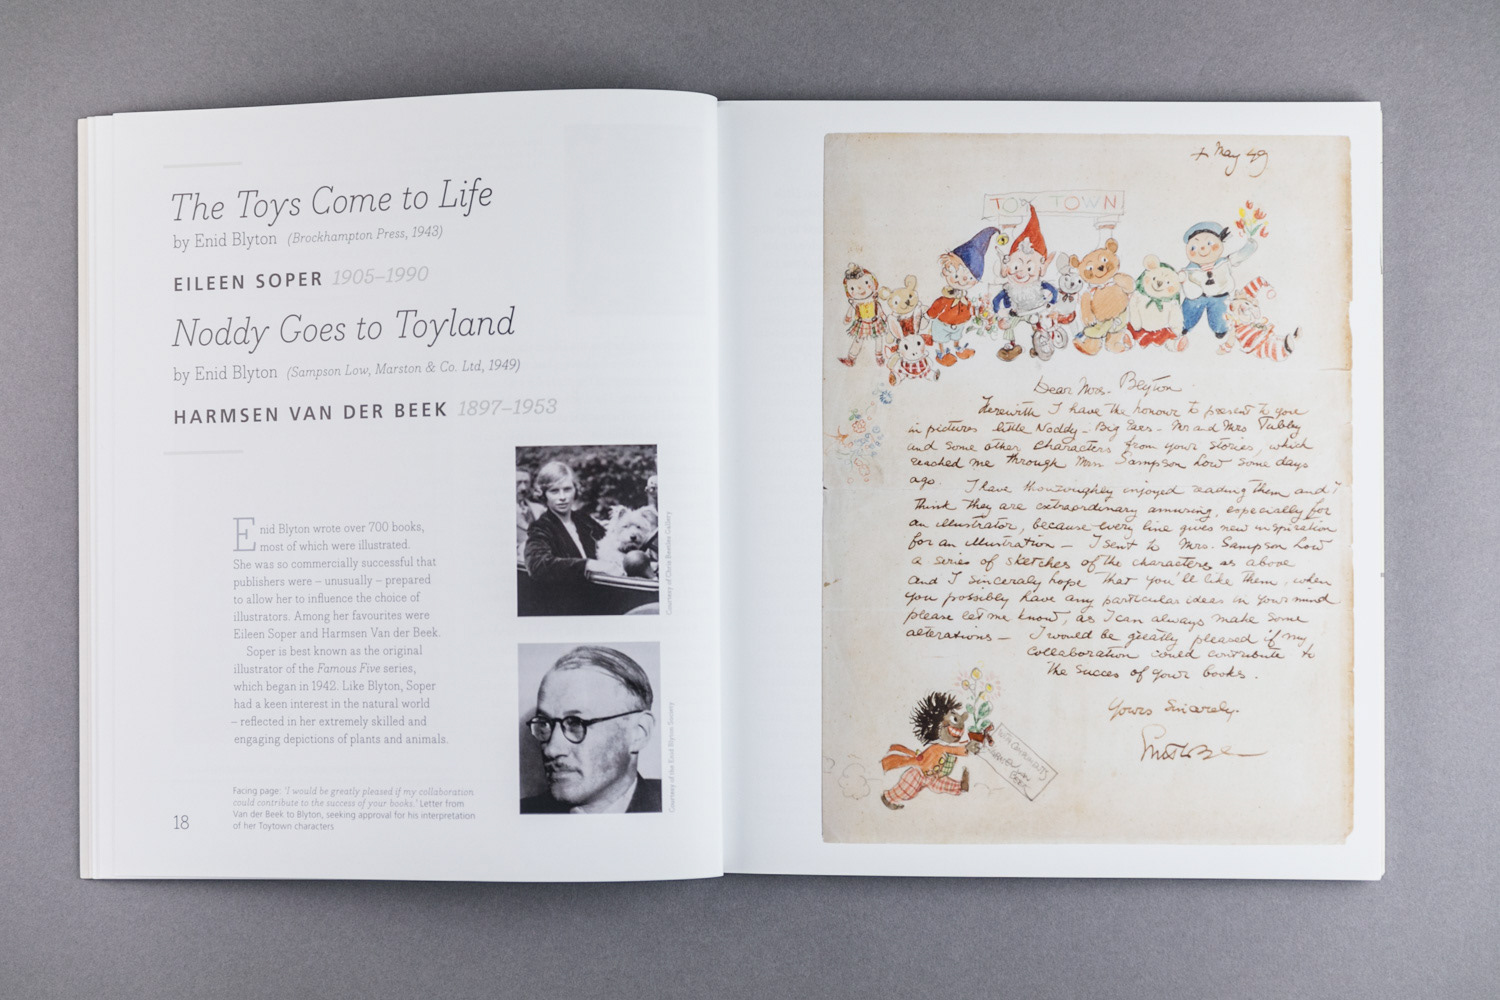 The Toys Come to Life
by Enid Blyton (Brockhampton Press, 1943)
EILEEN SOPER 1905–1990
Noddy Goes to Toyland
by Enid Blyton (Sampson Low, Marston & Co. Ltd, 1949)
HARMSEN VAN DER BEEK 1897–1953
Enid Blyton wrote over 700 books,
most of which were illustrated.
She was so commercially successful that
publishers were – unusually – prepared
to allow her to influence the choice of
illustrators. Among her favourites were
Eileen Soper and Harmsen Van der Beek.
Soper is best known as the original
illustrator of the Famous Five series,
which began in 1942. Like Blyton, Soper
had a keen interest in the natural world
– reflected in her extremely skilled and
engaging depictions of plants and animals.
Courtesy of Chris Beetles Gallery
Courtesy of the Enid Blyton Society
Facing page: 'I would be greatly pleased if my collaboration
could contribute to the success of your books.' Letter from
Van der Beek to Blyton, seeking approval for his interpretation
of her Toytown characters
18
May 49
TOY TOWN
Dear Mrs. Blyton
Herewith I have the honour to present to you
in pictures little Noddy - Big Ears - Mr and Mrs Tubby
and some other characters from your stories, which
reached me through Mrs Sampson Low some days
ago. I have thouroughly enjoyed reading them and I
think they are extraordinary amusing, especially for
an illustrator, because every line gives new inspiration
for an illustration – I sent to Mrs. Sampson Low
a series of sketches of the characters as above
and I sincerely hope that you'll like them, when
you possibly have any particular ideas in your mind
please let me know, as I can always make some
alterations – I would be greatly pleased if my
collaboration could contribute to
the succes of your books.
Yours Sincerely.